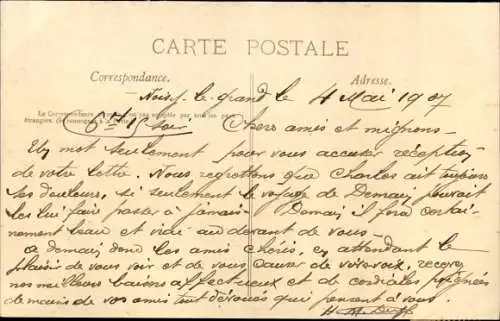 CARTE POSTALE
Correspondance. Adresse.
Noisy-le-grand le 4 Mai 1907
La Correspondance
étrangers
6 h 15 soir Chers amis et mignons-
Un mot seulement pour vous accuser réception
de votre lettre. Nous regrettons que Charles ait toujours
ses douleurs, si seulement le voyage de Demain pouvait
les lui faire passer à jamais. Demain il fera certai-
nement beau et irai au devant de vous-
a demain donc les amis chéris, en attendant le
plaisir de vous voir et de vous causer de vive voix, recevez
nos meilleurs baisers affectueux et de cordiales poignées
de mains de vos amis tout dévoués qui pensent à vous.